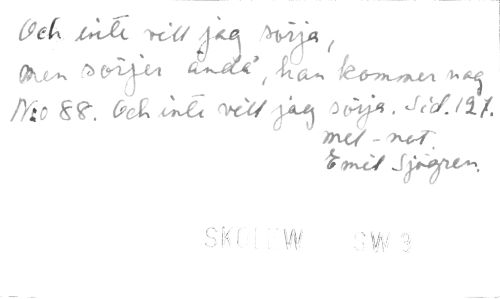 Och inte vill jag sörja,
men sörjer ändå, han kommer nog
N:o 88. Och inte vill jag sörja. Sid. 127.
mel-not.
Emil Sjögren.
SW 3